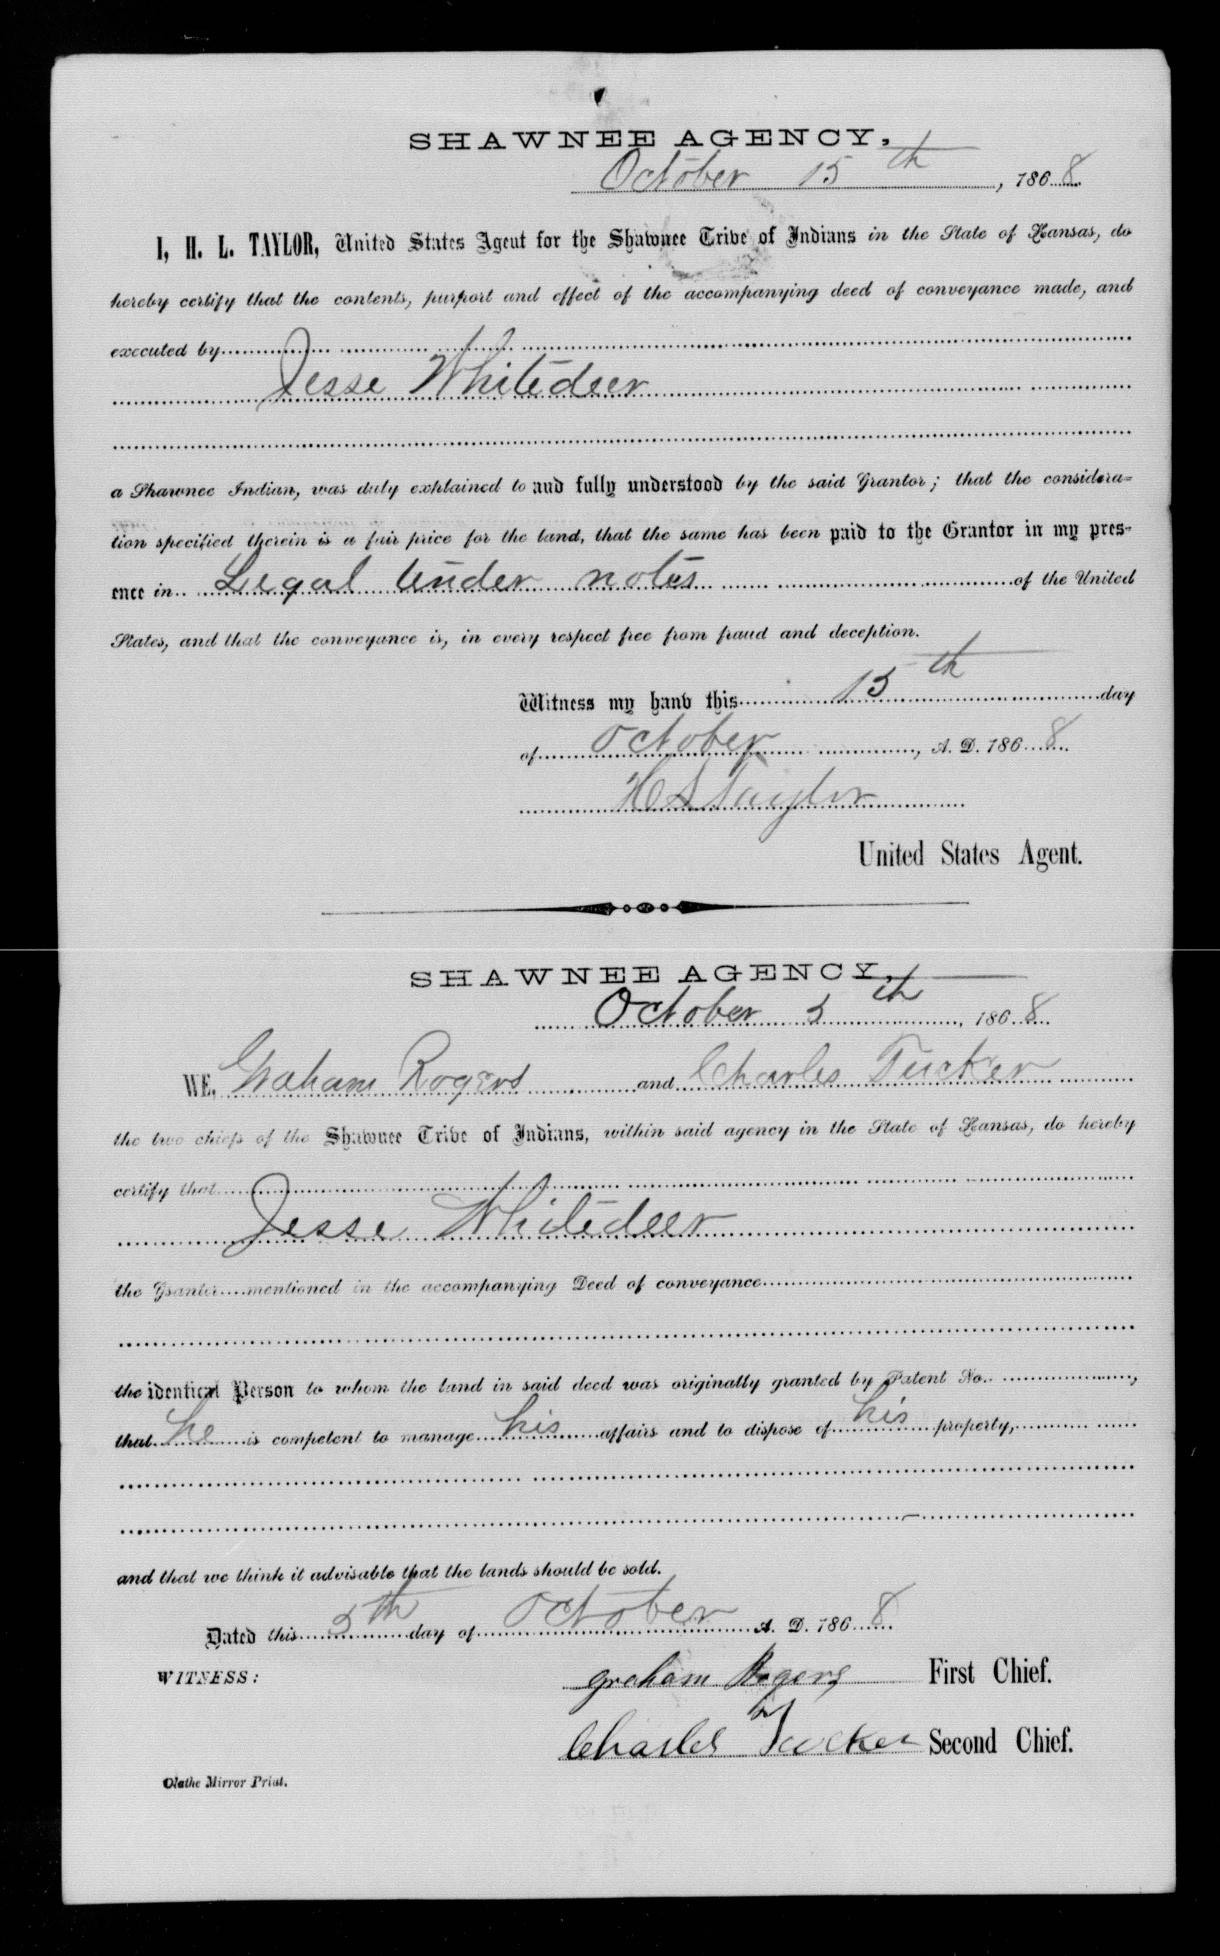 SHAWNEE AGENCY,
October 15th, 1868
I, H. L. TAYLOR, United States Agent for the Shawnee Tribe of Indians in the State of Kansas, do
hereby certify that the contents, purport and effect of the accompanying deed of conveyance made, and
executed by
Jesse Whitedeer
a Shawnee Indian, was duly explained to and fully understood by the said Grantor; that the considera=
tion specified therein is a fair price for the land, that the same has been paid to the Grantor in my pres-
ence in Legal Tender notes of the United
States, and that the conveyance is, in every respect free from fraud and deception.
Witness my hand this 15th day
of October, A. D. 1868
H L Taylor
United States Agent.
SHAWNEE AGENCY,
October 5th, 1868
WE, Graham Rogers and Charles Tucker
the two chiefs of the Shawnee Tribe of Indians, within said agency in the State of Kansas, do hereby
certify that
Jesse Whitedeer
the Grantor mentioned in the accompanying Deed of conveyance
the identical Person to whom the land in said deed was originally granted by Patent No. ,
that he is competent to manage his affairs and to dispose of his property,
and that we think it advisable that the lands should be sold.
Dated this 5th day of October A. D. 1868
WITNESS:
graham Rogers First Chief.
Charles Tucker Second Chief.
Olathe Mirror Print.